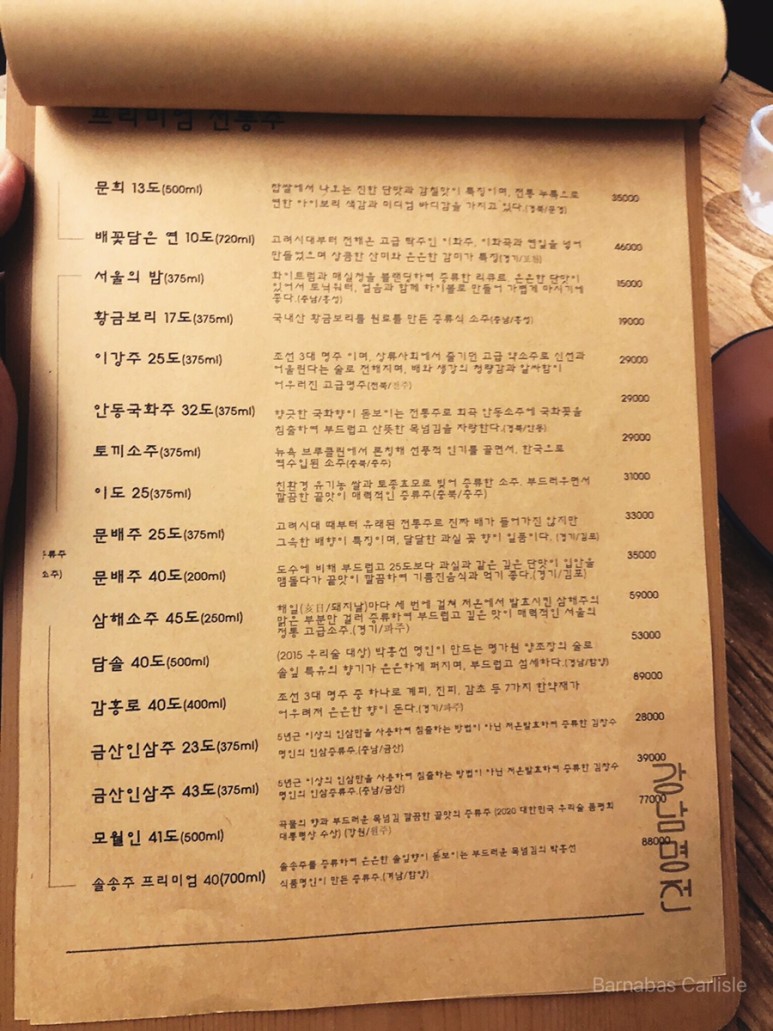 프리미엄 전통주
문희 13도(500ml)
찹쌀에서 나오는 진한 단맛과 감칠맛이 특징이며, 전통 누룩으로
연한 아이보리 색감과 미디엄 바디감을 가지고 있다.(경북/문경)
35000
배꽃담은 연 10도(720ml)
고려시대부터 전해온 고급 탁주인 이화주. 이화곡과 연잎을 넣어
만들었으며 상큼한 산미와 은은한 감미가 특징(경기/
46000
서울의 밤(375ml)
화이트럼과 매실청을 블랜딩하여 증류한 리큐르. 은은한 단맛이
있어서 토닉워터, 얼음과 함께 하이볼로 만들어 가볍게 마시기에
좋다.(충남/홍성)
15000
황금보리 17도(375ml)
국내산 황금보리를 원료를 만든 증류식 소주(충남/홍성)
19000
이강주 25도(375ml)
조선 3대 명주 이며, 상류사회에서 즐기던 고급 약소주로 신선과
어울린다는 술로 전해지며, 배와 생강의 청량감과 알싸함이
어우러진 고급명주(전북/전주)
29000
안동국화주 32도(375ml)
향긋한 국화향이 돋보이는 전통주로 회곡 안동소주에 국화꽃을
침출하여 부드럽고 산뜻한 목넘김을 자랑한다.(경북/안동)
29000
토끼소주(375ml)
뉴욕 브루클린에서 론칭해 선풍적 인기를 끌면서, 한국으로
역수입된 소주(충북/충주)
29000
이도 25(375ml)
친환경 유기농 쌀과 토종효모로 빚어 증류한 소주. 부드러우면서
깔끔한 끝맛이 매력적인 증류주(충북/충주)
31000
문배주 25도(375ml)
고려시대 때부터 유래된 전통주로 진짜 배가 들어가진 않지만
그윽한 배향이 특징이며, 달달한 과실 꽃 향이 일품이다. (경기/김포)
33000
증류주
소주)
문배주 40도(200ml)
도수에 비해 부드럽고 25도보다 과실과 같은 깊은 단맛이 입안을
맴돌다가 끝맛이 깔끔하여 기름진음식과 먹기 좋다.(경기/김포)
35000
삼해소주 45도(250ml)
해일(亥日/돼지날)마다 세 번에 걸쳐 저온에서 발효시킨 삼해주의
맑은 부분만 걸러 증류하여 부드럽고 깊은 맛이 매력적인 서울의
전통 고급소주.(경기/파주)
59000
담솔 40도(500ml)
(2015 우리술 대상) 박흥선 명인이 만드는 명가원 양조장의 술로
솔잎 특유의 향기가 은은하게 퍼지며, 부드럽고 섬세하다.(경남/함양)
53000
감홍로 40도(400ml)
조선 3대 명주 중 하나로 계피, 진피, 감초 등 7가지 한약재가
어우러져 은은한 향이 돈다.(경기/파주)
89000
금산인삼주 23도(375ml)
5년근 이상의 인삼만을 사용하여 침출하는 방법이 아닌 저온발효하여 증류한 김창수
명인의 인삼증류주.(충남/금산)
28000
금산인삼주 43도(375ml)
5년근 이상의 인삼만을 사용하여 침출하는 방법이 아닌 저온발효하여 증류한 김창수
명인의 인삼증류주.(충남/금산)
39000
모월인 41도(500ml)
곡물의 향과 부드러운 목넘김 깔끔한 끝맛의 증류주 (2020 대한민국 우리술 품평회
대통령상 수상) (강원/원주)
77000
솔송주 프리미엄 40(700ml)
솔송주를 증류하여 은은한 솔잎향이 돋보이는 부드러운 목넘김의 박흥선
식품명인이 만든 증류주.(경남/함양)
88000
강남명전
Barnabas Carlisle